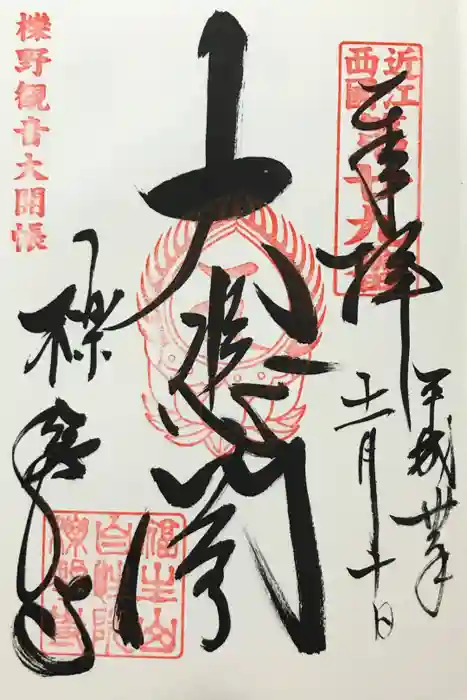 近江
西國
第二十九番
奉拝
平成卅年
十一月十日
大悲閣
櫟野寺
櫟野観音大開帳
福生山
自性院
櫟野寺